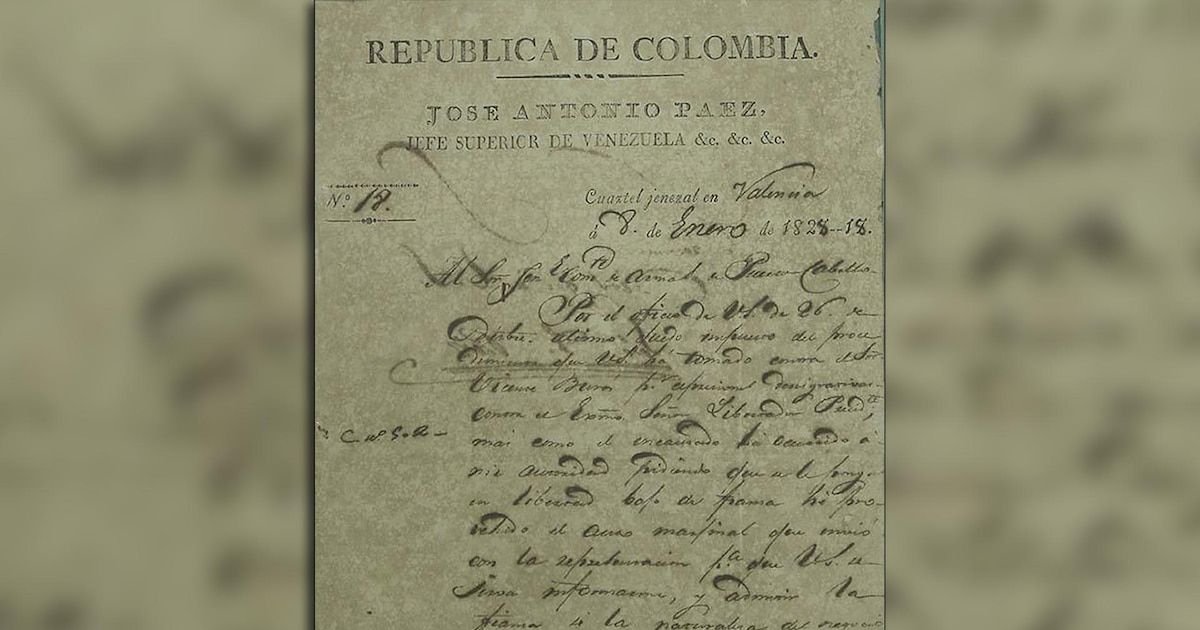 REPUBLICA DE COLOMBIA.
JOSE ANTONIO PAEZ,
JEFE SUPERIOR DE VENEZUELA &c. &c. &c.
N.º 18.
Cuartel jeneral en Valencia
á 8. de Enero de 1828--18.
Al Sor. Comte. de armas de Puerto Cabello
Por el oficio de VS. de 26. de
Dcbre. ultimo quedo impuesto del proce
dimiento que VS. ha tomado contra el Sor.
Vicente por espresiones denigrativas
contra el Exmo. Señor Libertador Presidte,
mas como el encausado ha ocurrido á
mi autoridad pidiendo que se le ponga
en libertad bajo de fianza he pro-
vehido el auto marjinal que envió
con la representacion pa. que VS. se
sirva informarme, y admitir la
fianza si la naturaleza del negocio